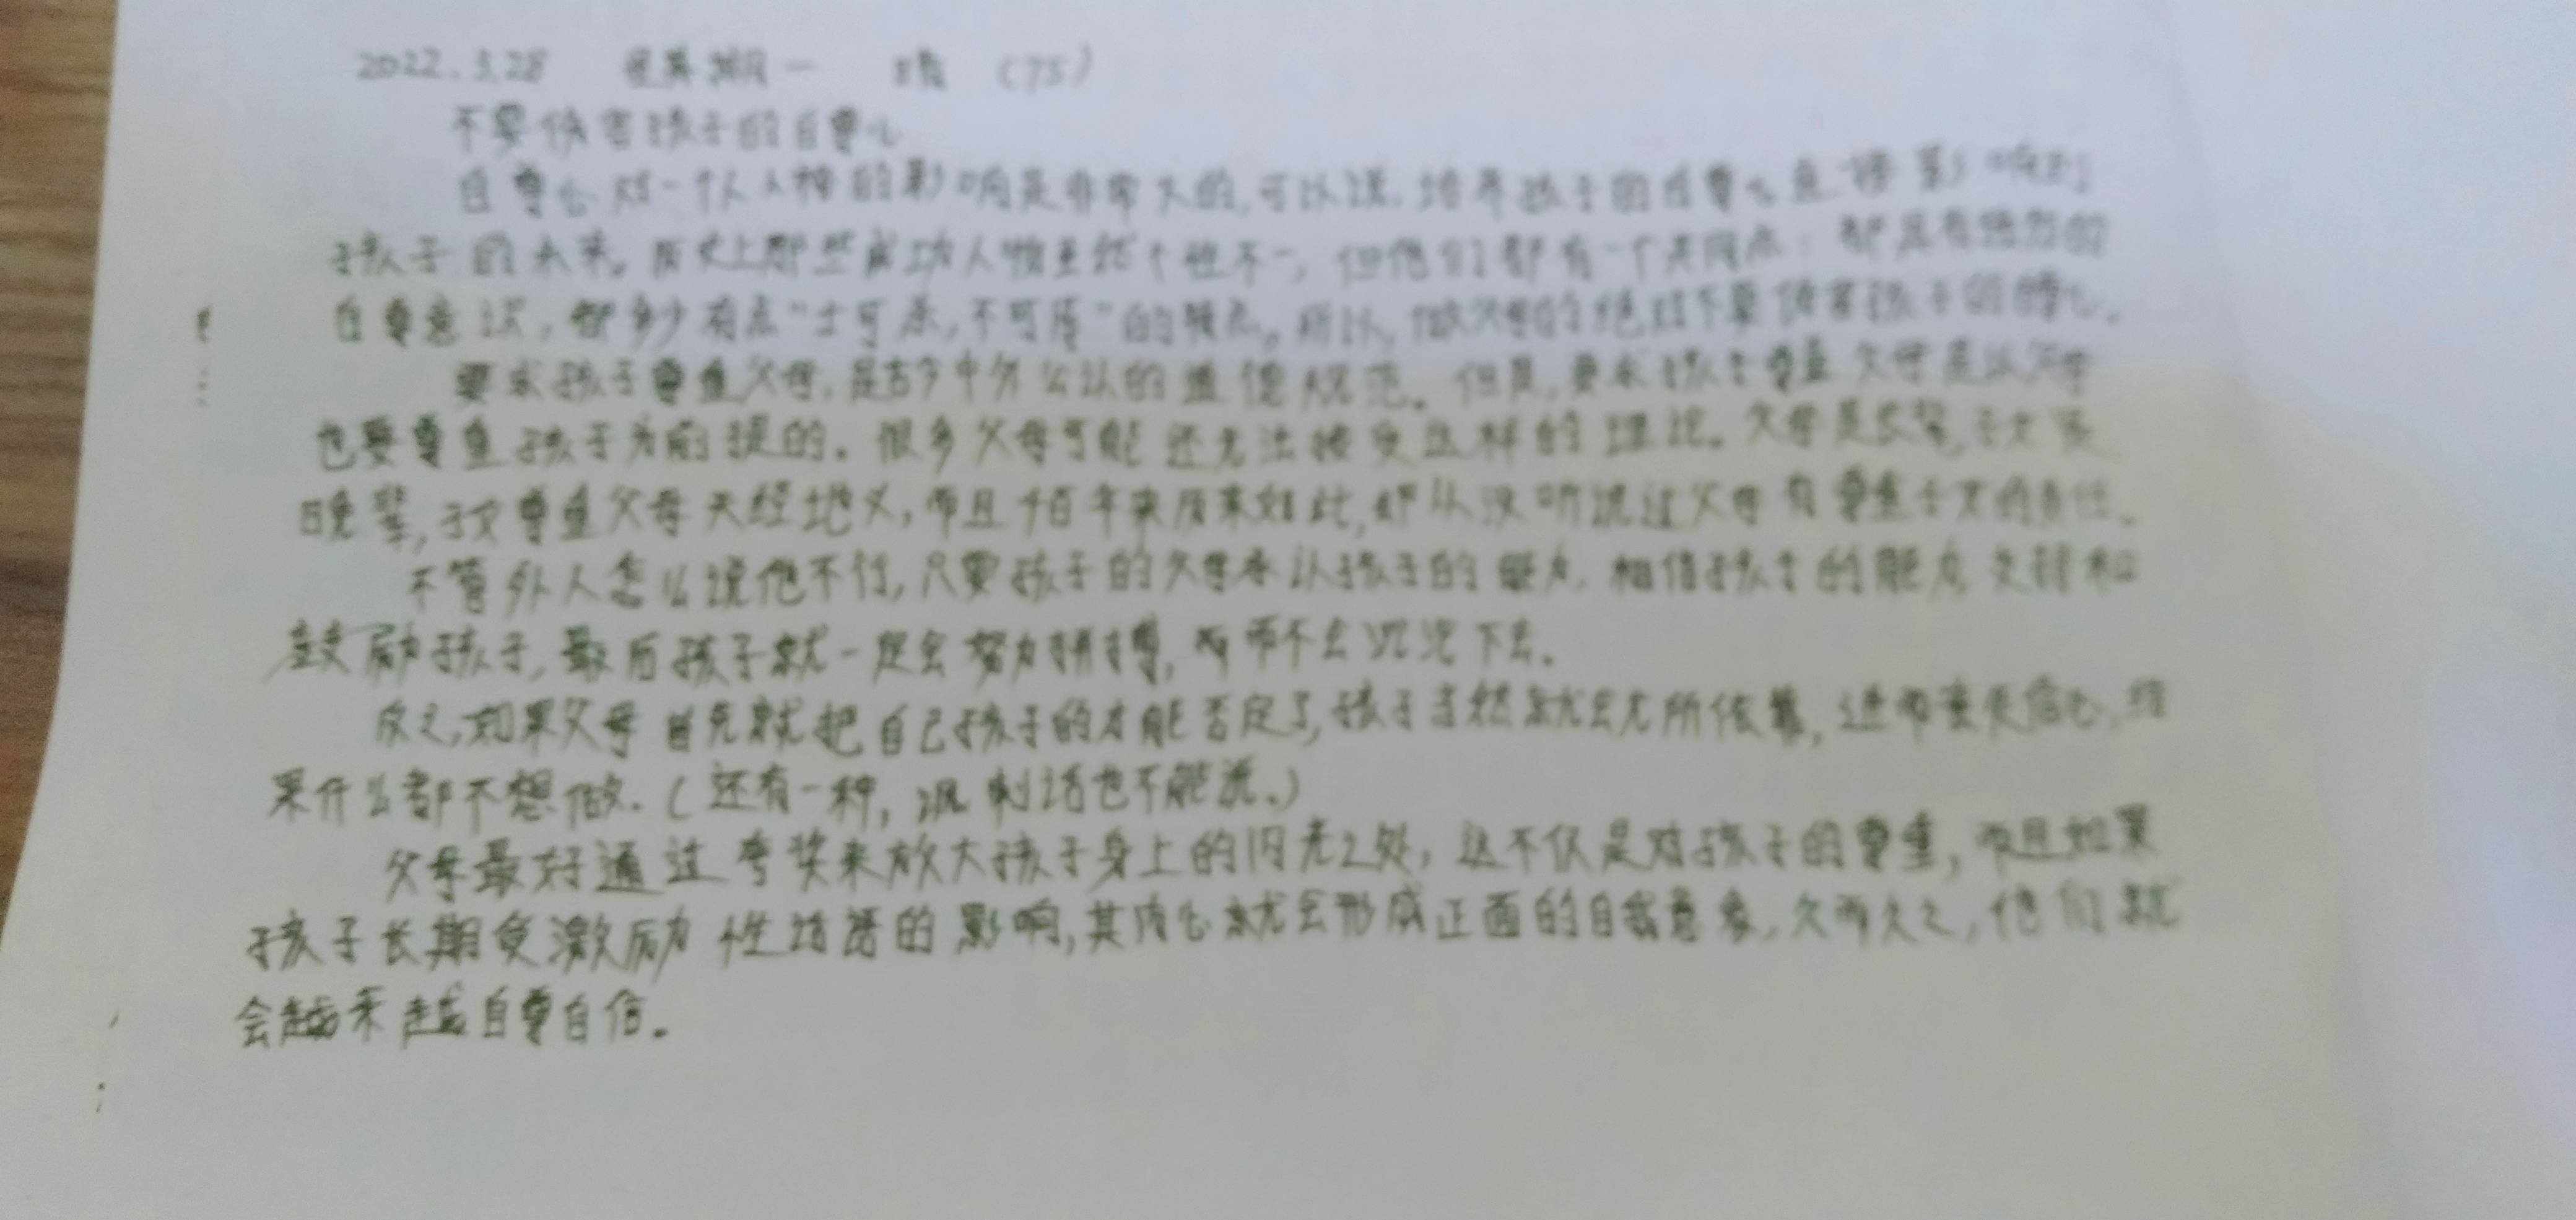 2022.3.28 星期一 晴 (75)
不要伤害孩子的自尊心
自尊心对一个人人格的影响是非常大的,可以说,培养孩子的自尊心直接影响到
孩子的未来。历史上那些成功人物虽然个性不一,但他们都有一个共同点:都具有强烈的
自尊意识,都多少有点“士可杀,不可辱”的特点。所以,做父母的绝对不要伤害孩子的自尊心。
要求孩子尊重父母,是古今中外公认的道德规范。但是,要求孩子尊重父母是以父母
也要尊重孩子为前提的。很多父母可能还无法接受这样的理论。父母是长辈,子女是
晚辈,子女尊重父母天经地义,而且千百年来历来如此,却从没听说过父母有尊重子女的责任。
不管外人怎么说他不行,只要孩子的父母承认孩子的能力,相信孩子的能力,支持和
鼓励孩子,最后孩子就一定会努力拼搏,而不会沉沦下去。
反之,如果父母首先就把自己孩子的才能否定了,孩子当然就会无所依靠,进而丧失信心,结
果什么都不想做.(还有一种,讽刺话也不能说。)
父母最好通过夸奖来放大孩子身上的闪光之处,这不仅是对孩子的尊重,而且如果
孩子长期受激励性话语的影响,其内心就会形成正面的自我意象,久而久之,他们就
会越来越自尊自信。